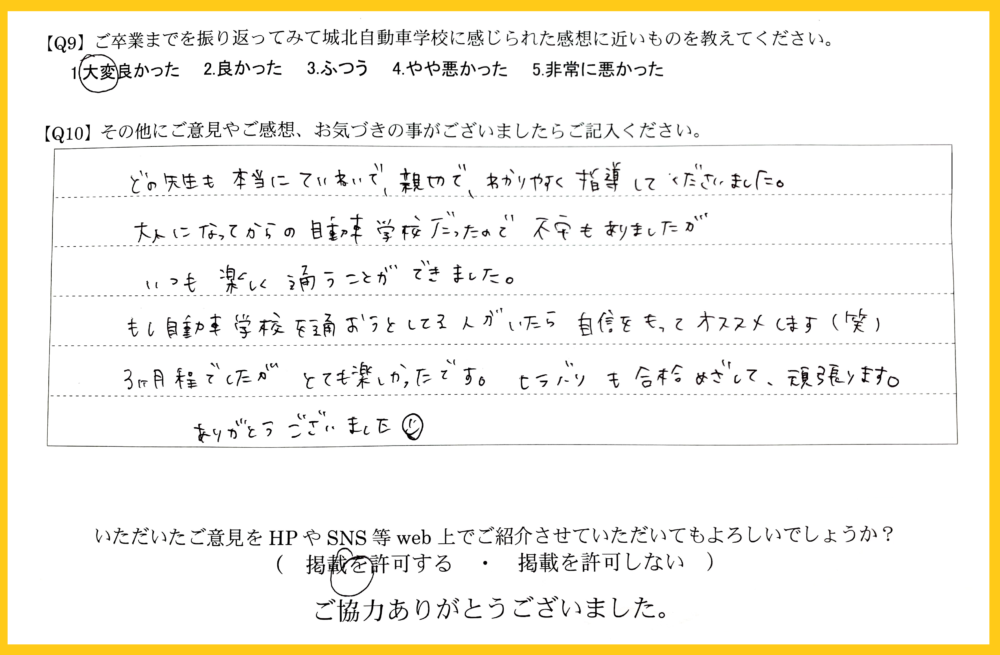 【Q9】ご卒業までを振り返ってみて城北自動車学校に感じられた感想に近いものを教えてください。
1 大変良かった 2.良かった 3.ふつう 4.やや悪かった 5.非常に悪かった
【Q10】その他にご意見やご感想、お気づきの事がございましたらご記入ください。
どの先生も 本当に ていねいで、親切で、わかりやすく 指導して くださいました。
大人になってからの 自動車学校だったので 不安もありましたが
いつも 楽しく 通うことが できました。
もし自動車学校を通おうとしてる人がいたら 自信をもって オススメします(笑)
3ヶ月程でしたが とても楽しかったです。 ヒラバリも 合格めざして、頑張ります。
ありがとうございました
いただいたご意見を HP や SNS 等 web 上でご紹介させていただいてもよろしいでしょうか?
( 掲載を許可する ・ 掲載を許可しない )
ご協力ありがとうございました。